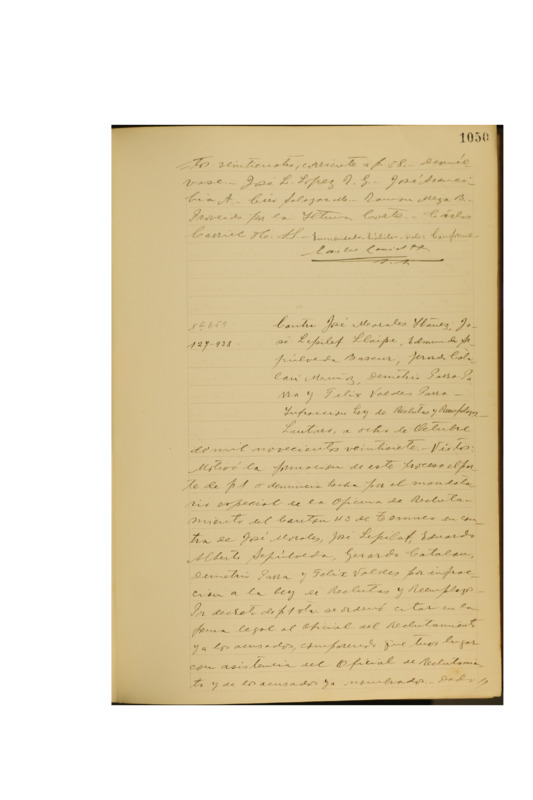 1050
tos veinticuatro, corriente a f. 58.- Devuél
vase.- José L. López R. G.- José
bia A.- Ciro Salazar M.- Ramon Meza R.-
Proveido por la Iltma Corte.- Cárlos
Conforme
127-938
Contra José Morales Ybáñez, Jo-
sé Lepilaf Llaipe, Edmundo Se-
púlveda Bascur, Gerardo Cata-
lan Muñoz, Demetrio Parra Pa
rra y Felix Valdes Parra-
Infraccion Ley de Reclutas y Reemplazos
Lautaro, a ocho de Octubre
de mil novecientos veintisiete.- Vistos:
Motivó la formacion de este proceso el par
te de f 1 o denuncia hecha por el mandata
rio especial de la Oficina de Recluta-
miento del Canton 43 de Temuco en con
tra de José Morales, José Lepilaf, Eduardo
Alberto Sepúlveda, Gerardo Catalan,
Demetrio Parra y Felix Valdes por infrac-
cion a la ley de Reclutas y Reemplazos.-
Por decreto de f 1 vta se ordenó citar en la
forma legal al Oficial del Reclutamiento
y a los acusados, comparendo que tuvo lugar
con asistencia del Oficial de Reclutamien
to y de los acusados ya nombrados.-